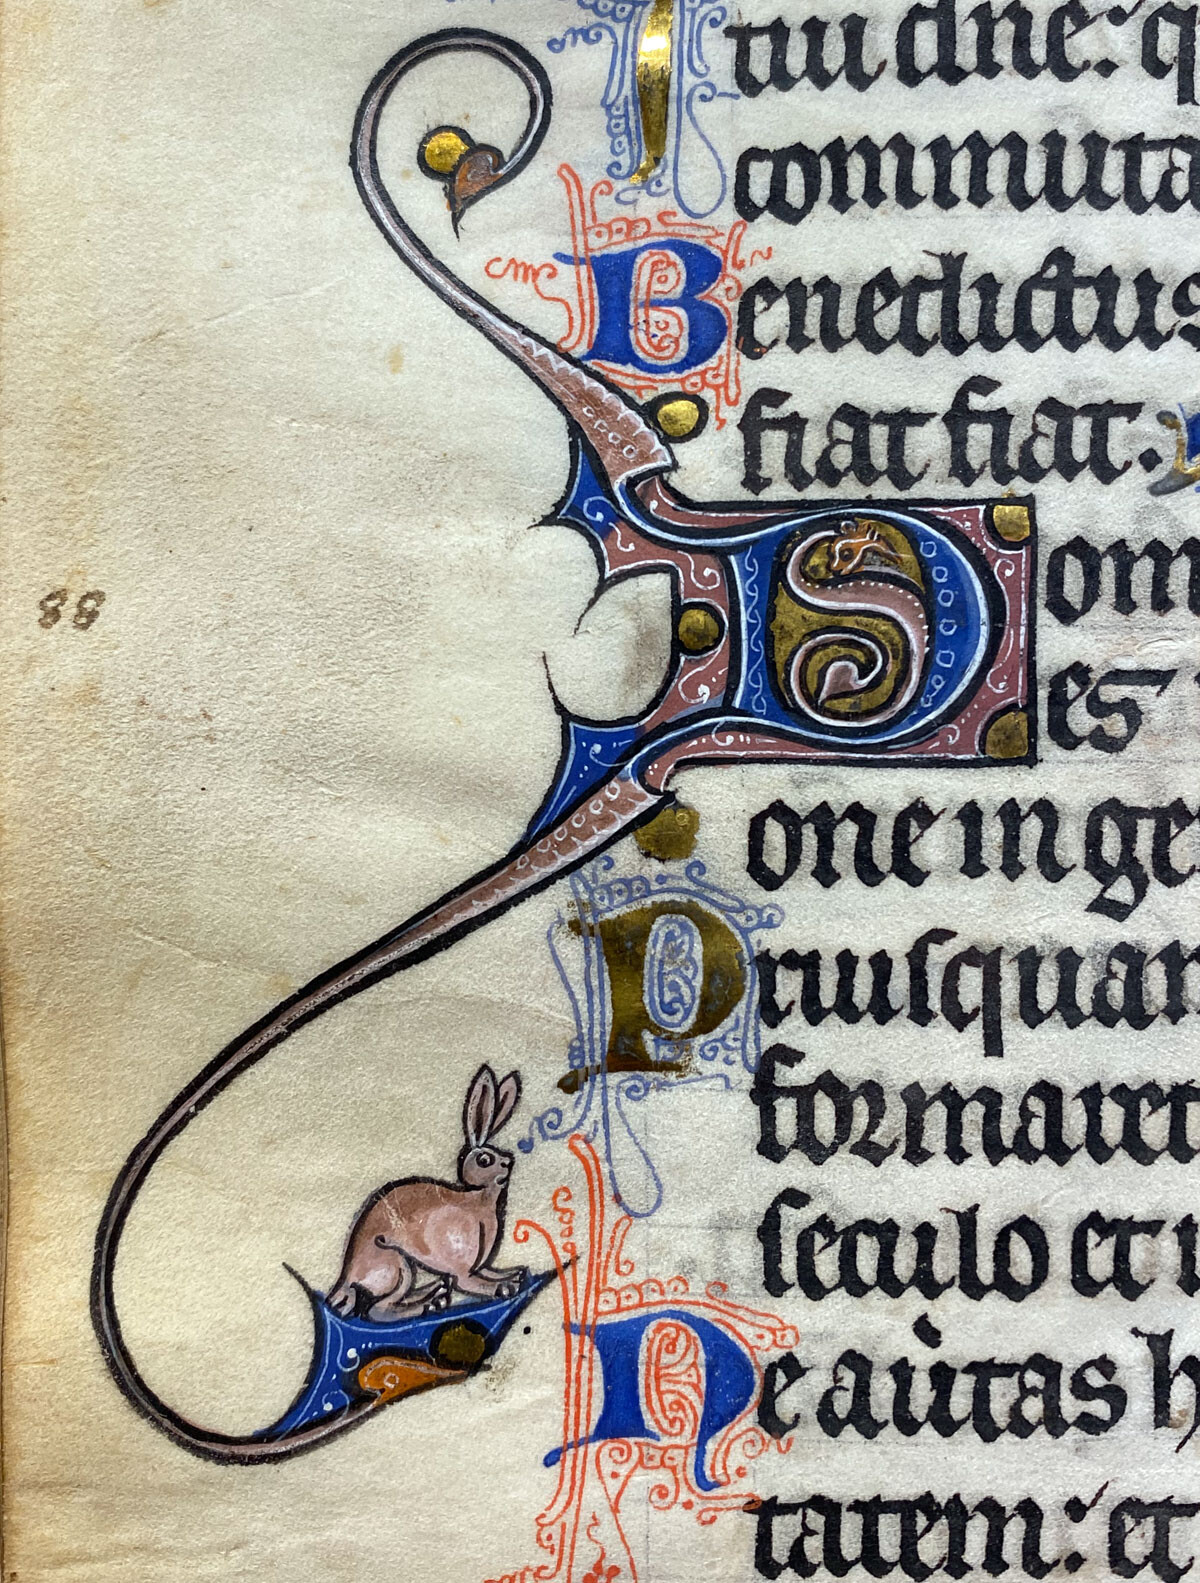 tui dñe: q
commuta
Benedictus
fiat fiat.
Dom
es
88
one in ge
Priusquam
formaret
seculo et
Ne auertas h
tatem: et